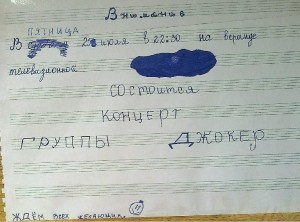 Внимание
ПЯТНИЦА
В июля в 22:30 на веранде
телевизионной
СОСТОИТСЯ
КОНЦЕРТ
ГРУППЫ ДЖОКЕР
ЖДЁМ всех желающих.